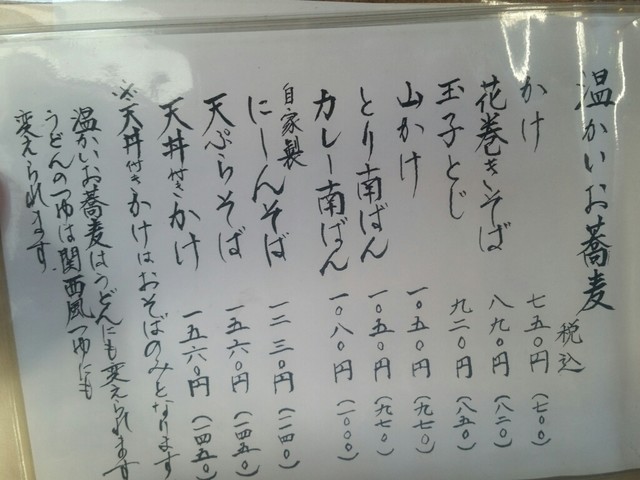 温かいお蕎麦
税込
かけ 七五〇円(七〇〇)
花巻きそば 八九〇円(八二〇)
玉子とじ 九二〇円(八五〇)
山かけ 一〇五〇円(九七〇)
とり南ばん 一〇五〇円(九七〇)
カレー南ばん 一〇八〇円(一〇〇〇)
自家製
にしんそば 一二三〇円(一一四〇)
天ぷらそば 一五六〇円(一四五〇)
天丼付きかけ 一五六〇円(一四五〇)
※天丼付きかけはおそばのみとなります
温かいお蕎麦はうどんにも変えられます
うどんのつゆは関西風つゆにも
変えられます。